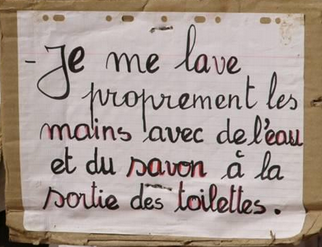 - Je me lave
proprement les
mains avec de l'eau
et du savon à la
sortie des toilettes.